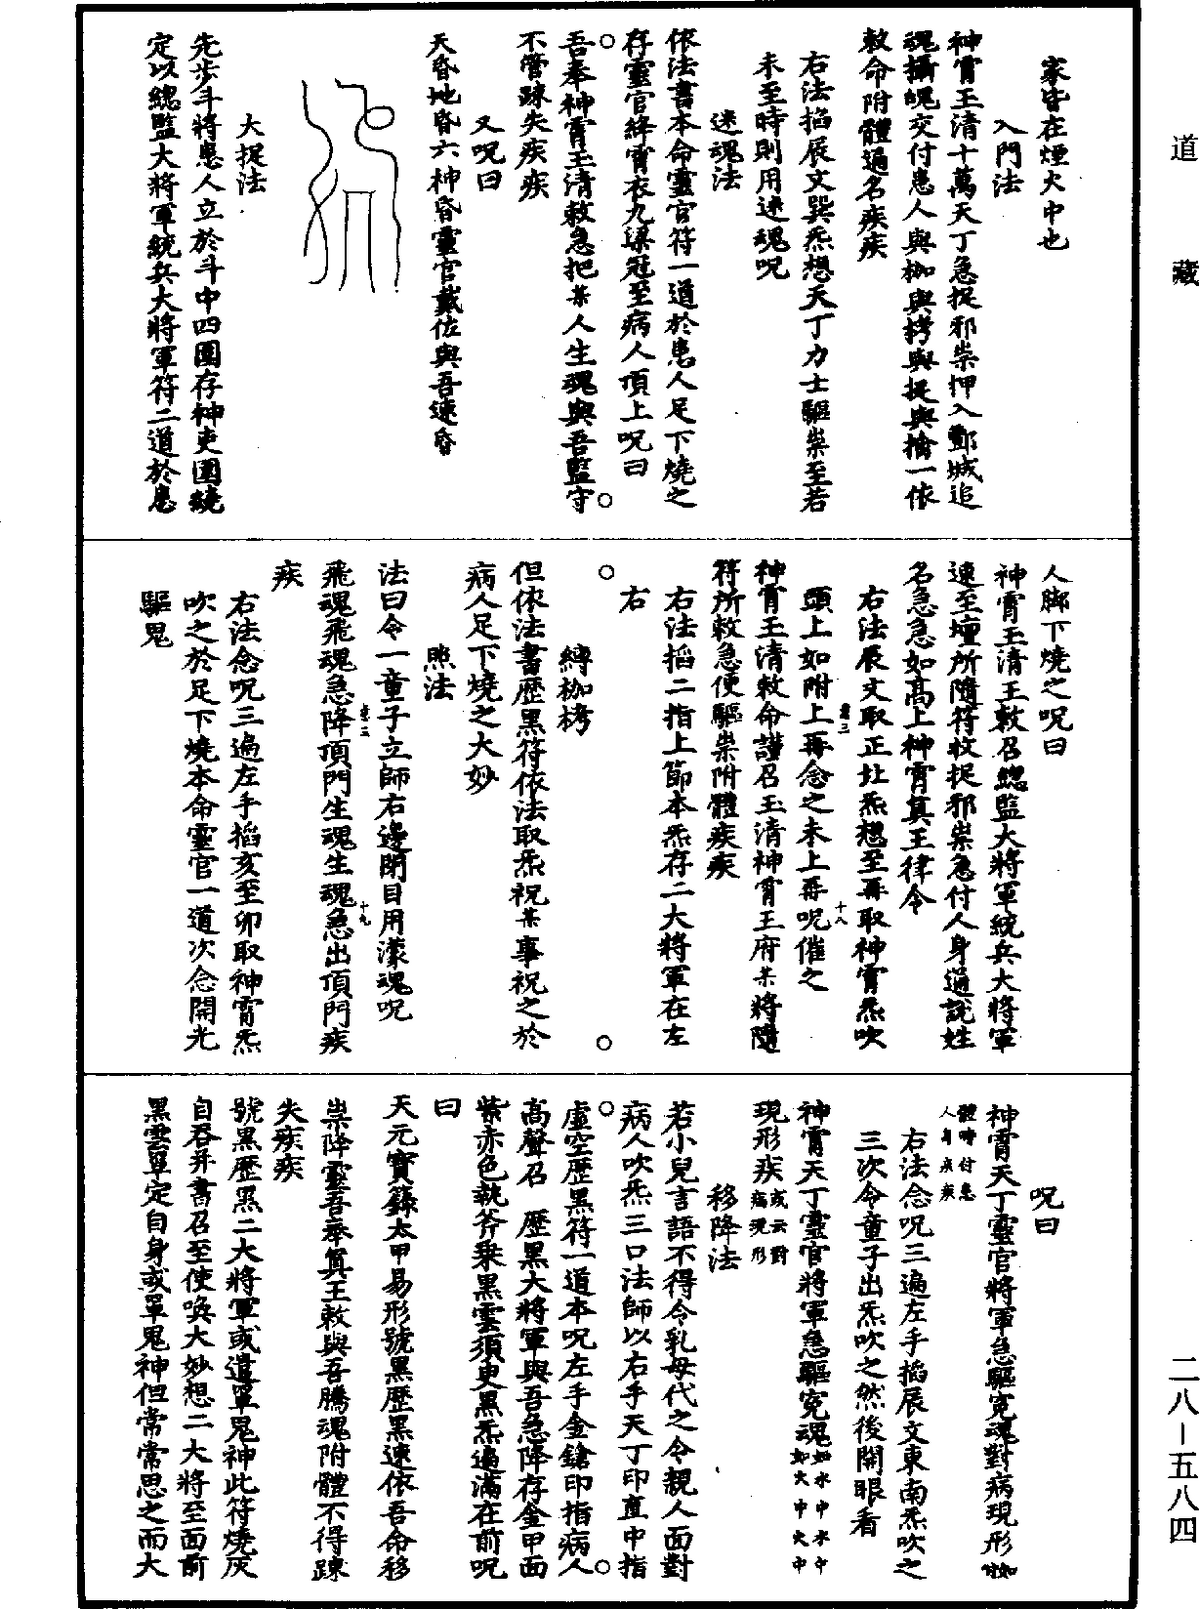 道藏
家皆在煙火中也
入門法
神霄玉清十萬天丁急捉邪祟押入酆城追
魂攝魄交付患人與枷與拷與捉與擒一依
敕命附體通名疾疾
右法掐辰文巽炁想天丁力士驅祟至若
未至時則用迷魂呪
迷魂法
依法書本命靈官符一道於患人足下燒之
存靈官絳霄衣九梁冠至病人頂上呪曰
吾奉神霄玉清敕急把某人生魂與吾監守
不管踈失疾疾
又呪曰
天昏地昏六神昏靈官戴佐與吾速昏
大捉法
先步斗將患人立於斗中四圍存神吏圍繞
定以總監大將軍統兵大將軍符二道於患
人脚下燒之呪曰
神霄玉清王敕召總監大將軍統兵大將軍
速至壇所隨符收捉邪祟急付人身通說姓
名急急如高上神霄真王律令
右法辰文取正北炁想至再取神霄炁吹
頭上如附上再念之未上再呪催之
神霄玉清敕命謹召玉清神霄王府某將隨
符所敕急使驅祟附體疾疾
右法掐二指上節本炁存二大將軍在左
右
縛枷栲
但依法書歷黑符依法取炁祝某事祝之於
病人足下燒之大妙
照法
法曰令一童子立師右邊閉目用濛魂呪
飛魂飛魂急降頂門生魂生魂急出頂門疾
疾
右法念呪三遍左手掐亥至卯取神霄炁
吹之於足下燒本命靈官一道次念開光
驅鬼
呪曰
神霄天丁靈官將軍急驅寃魂對病現形如
體時付患
人身疾疾
右法念呪三遍左手掐辰文東南炁吹之
三次令童子出炁吹之然後開眼看
神霄天丁靈官將軍急驅寃魂如水中水中
如火中火中
現形疾或云對
病現形
移降法
若小兒言語不得令乳母代之令親人面對
病人吹炁三口法師以右手天丁印直中指
虛空歷黑符一道本呪左手金鎗印指病人
高聲召 歷黑大將軍與吾急降存金甲面
紫赤色執斧乘黑雲須更黑炁遍滿在前呪
曰
天元寶籙太甲易形號黑歷黑速依吾命移
祟降靈吾奉真王敕與吾騰魂附體不得踈
失疾疾
號黑歷黑二大將軍或遣罩鬼神此符燒灰
自吞并書召至使喚大妙想二大將至面前
黑雲罩定自身或罩鬼神但常常思之而大
二八—五八四